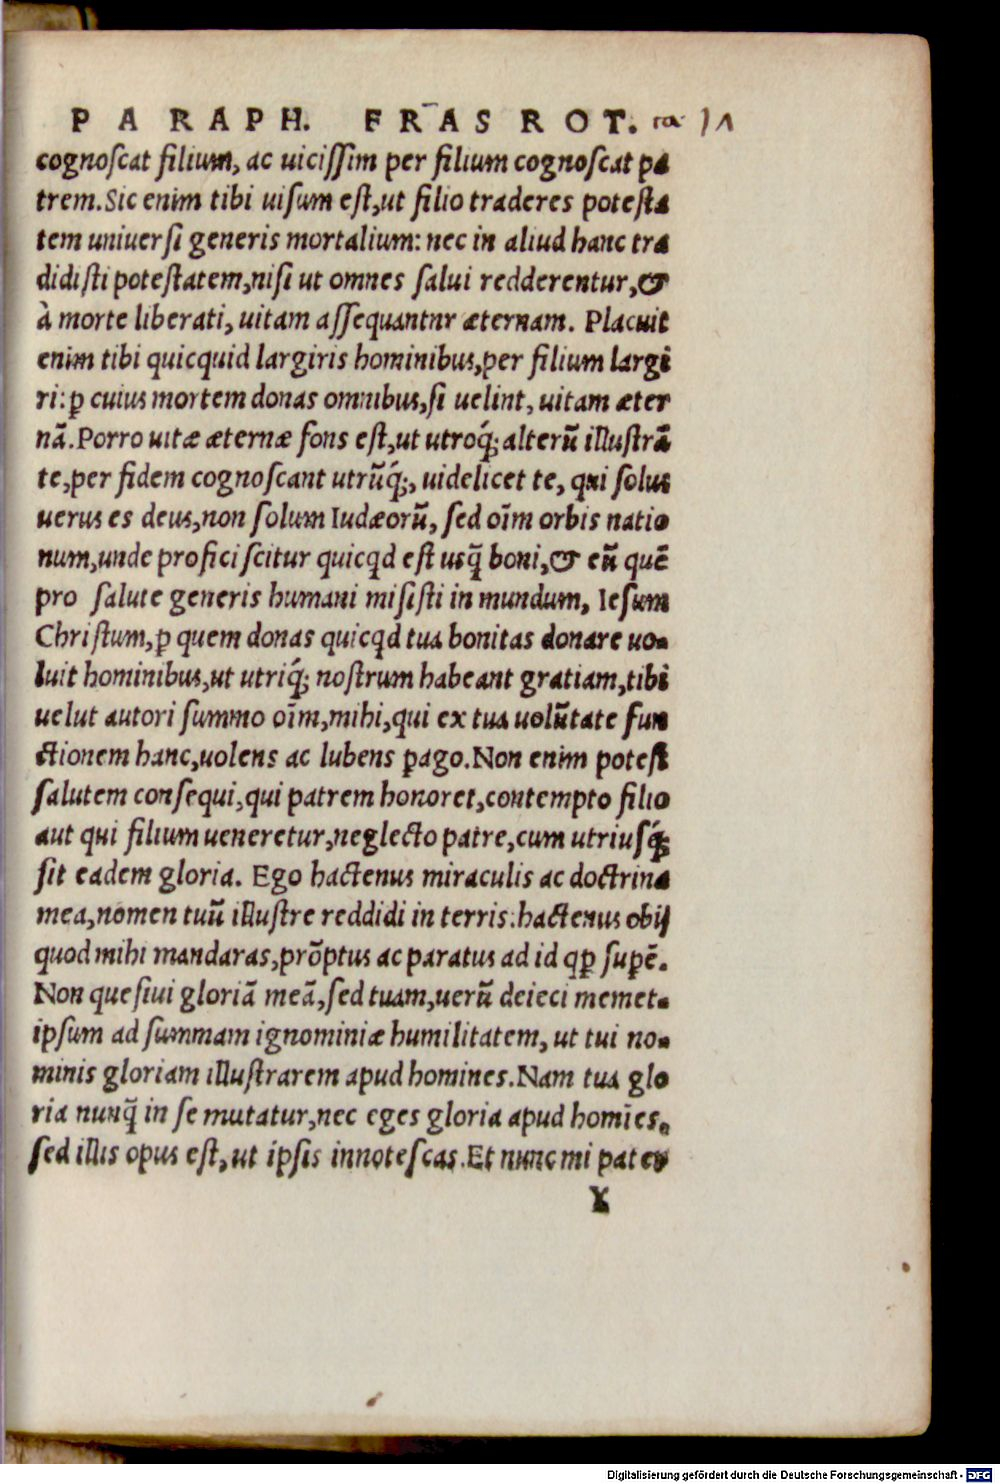 PARAPH. FRAS ROT.
cognoſcat filium, ac uiciſſim per filium cognoſcat pa
trem. Sic enim tibi uiſum eſt, ut filio traderes poteſta
tem uniuerſi generis mortalium: nec in aliud hanc tra
didiſti poteſtatem, niſi ut omnes ſalui redderentur, &
à morte liberati, uitam aſſequantnr æternam. Placuit
enim tibi quicquid largiris hominibus, per filium largi
ri: ꝑ cuius mortem donas omnibus, ſi uelint, uitam æter
nã. Porro uitæ æternæ fons eſt, ut utroq́; alterũ illuſtrã
te, per fidem cognoſcant utrũq́;, uidelicet te, qui ſolus
uerus es deus, non ſolum Iudæorũ, ſed oĩm orbis natio
num, unde proficiſcitur quicqd eſt uſq̃ boni, & eũ quẽ
pro ſalute generis humani miſiſti in mundum, Ieſum
Chriſtum, ꝑ quem donas quicqd tua bonitas donare uo-
luit hominibus, ut utriq́; noſtrum habeant gratiam, tibi
uelut autori ſummo oĩm, mihi, qui ex tua uolũtate fun
ctionem hanc, uolens ac lubens ꝑago. Non enim poteſt
ſalutem conſequi, qui patrem honoret, contempto filio
aut qui filium ueneretur, neglecto patre, cum utriuſq́;
ſit eadem gloria. Ego hactenus miraculis ac doctrina
mea, nomen tuũ illuſtre reddidi in terris. hactenus obij
quod mihi mandaras, prõptus ac paratus ad id qꝑ ſupẽ.
Non queſiui gloriã meã, ſed tuam, uerũ deieci memet-
ipſum ad ſummam ignominiæ humilitatem, ut tui no-
minis gloriam illuſtrarem apud homines. Nam tua glo
ria nunq̃ in ſe mutatur, nec eges gloria apud homĩes,
ſed illis opus eſt, ut ipſis innoteſcas. Et nunc mi pater
X
Digitalisierung gefördert durch die Deutsche Forschungsgemeinschaft - DFG